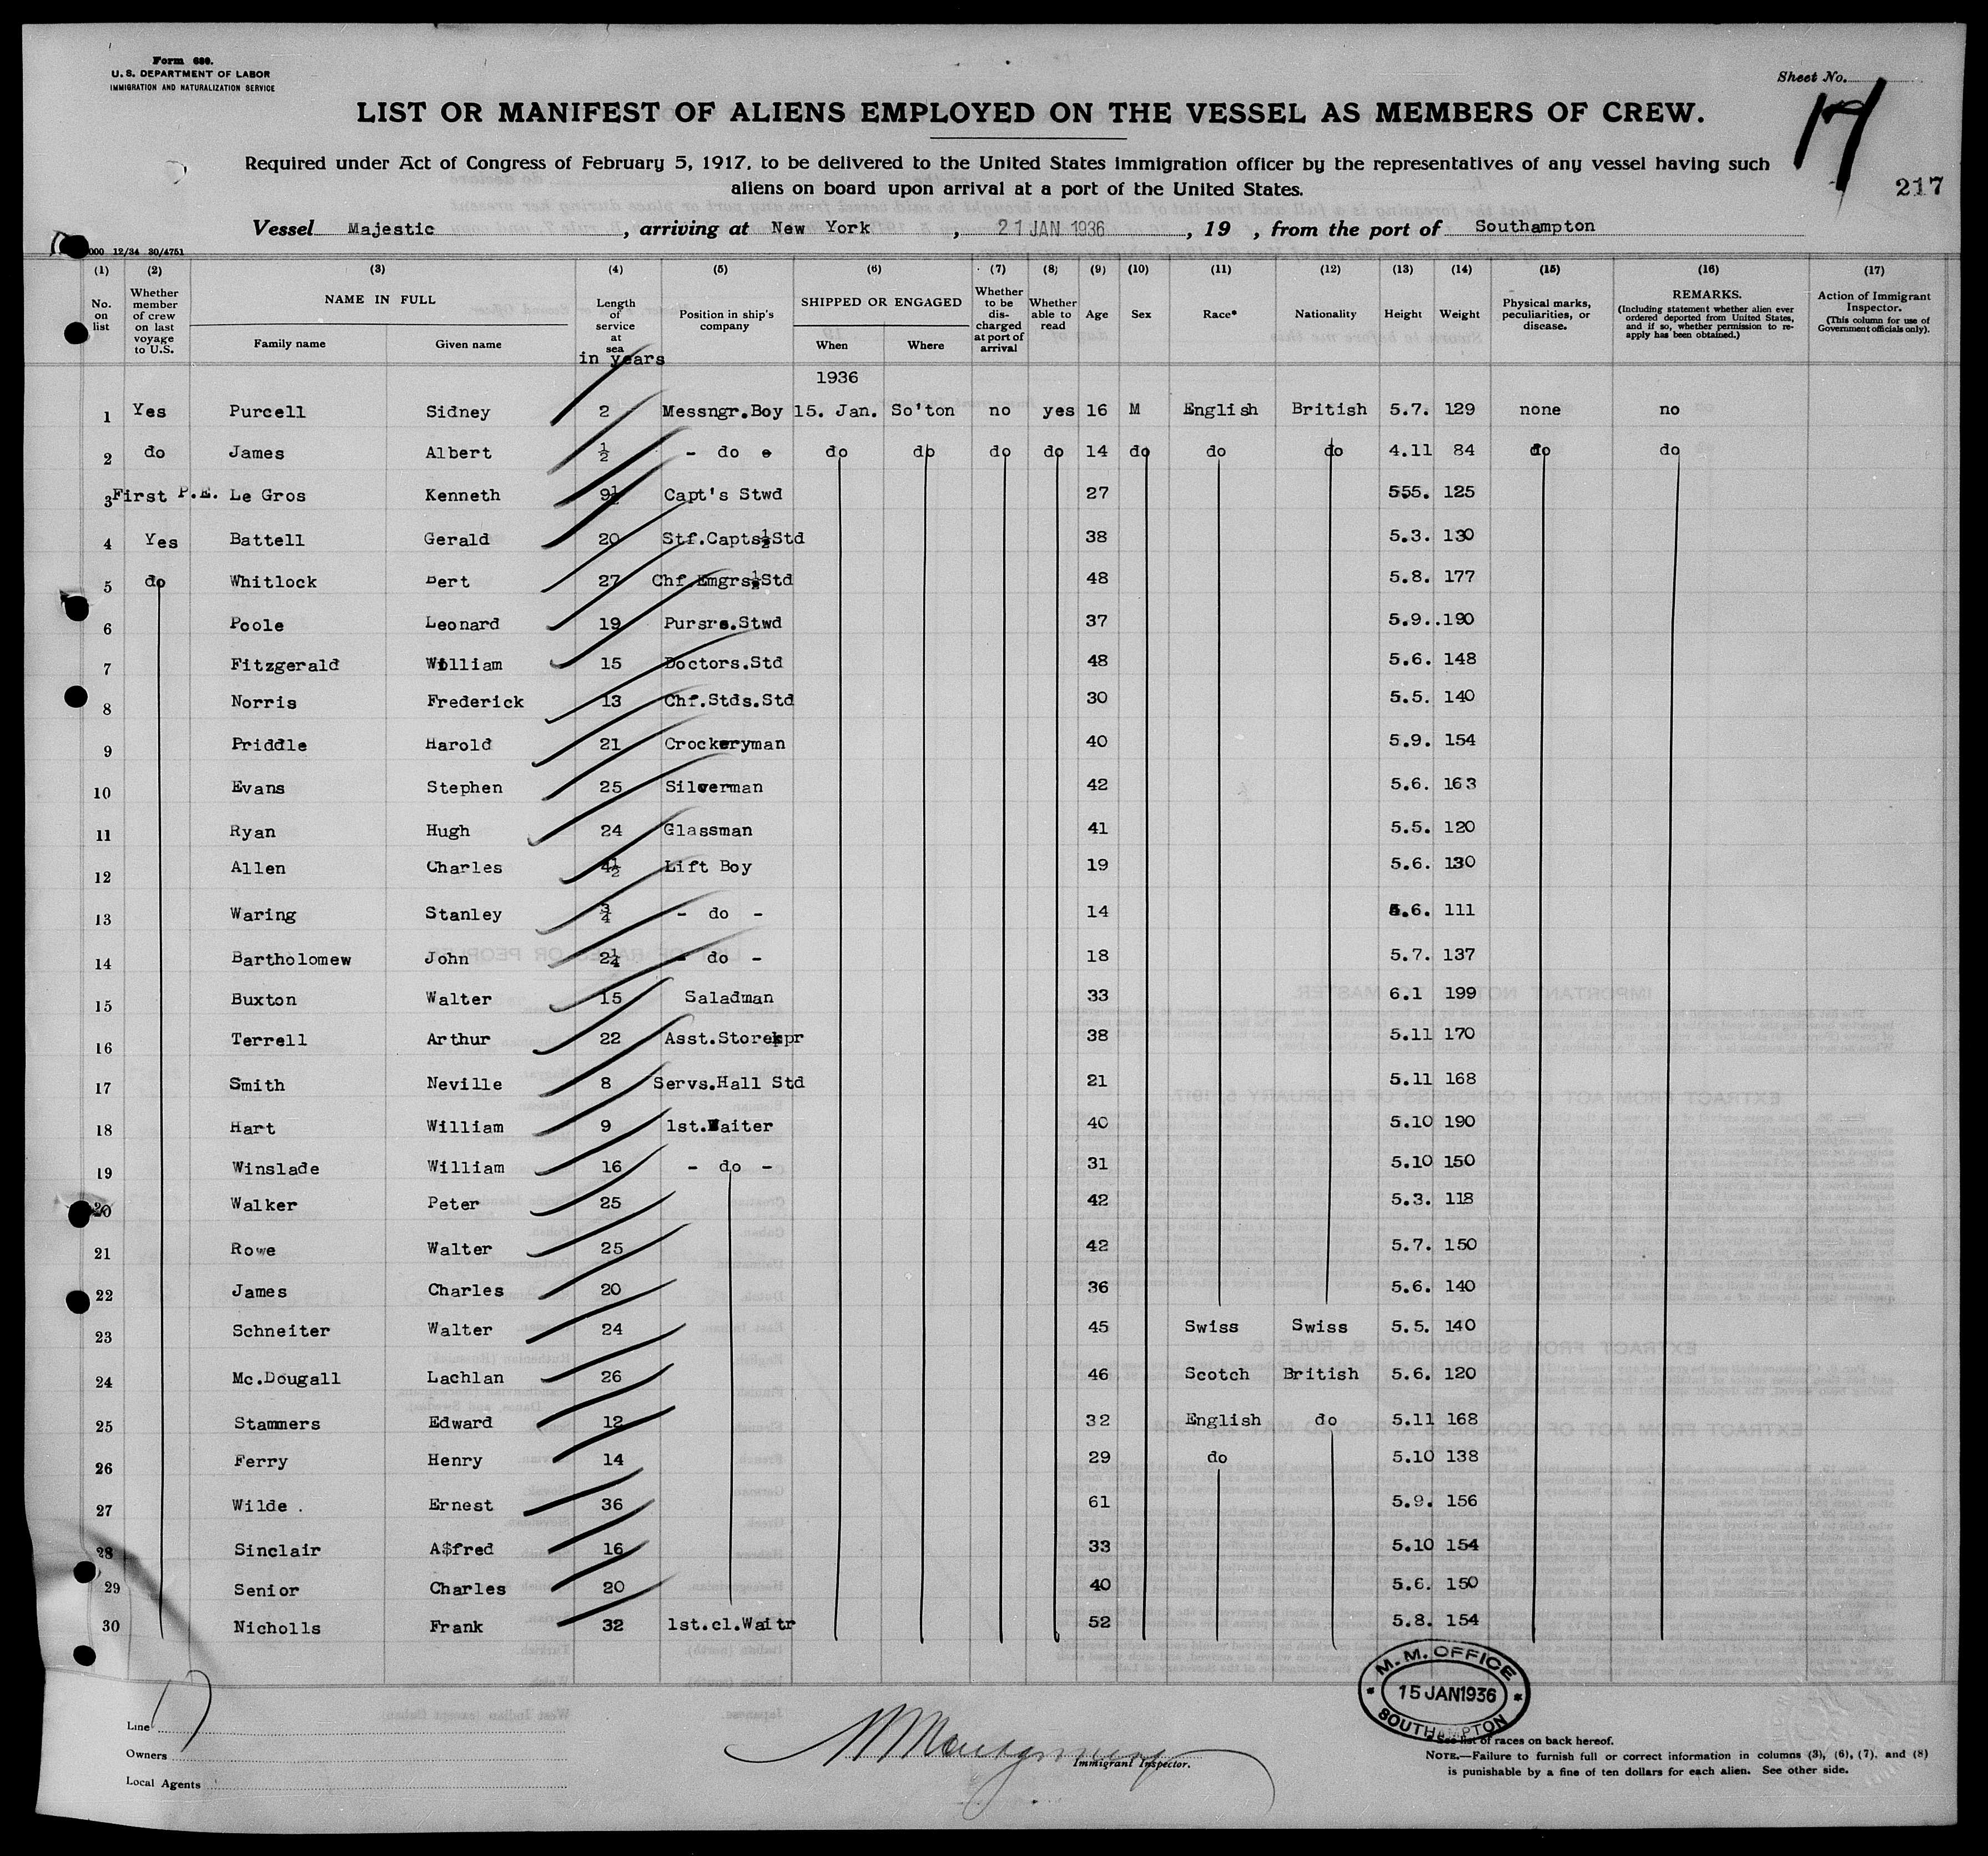 Form 680.
U. S. DEPARTMENT OF LABOR
IMMIGRATION AND NATURALIZATION SERVICE
Sheet No. 17
LIST OR MANIFEST OF ALIENS EMPLOYED ON THE VESSEL AS MEMBERS OF CREW.
Required under Act of Congress of February 5, 1917, to be delivered to the United States immigration officer by the representatives of any vessel having such
aliens on board upon arrival at a port of the United States.
217
Vessel Majestic, arriving at New York, 21 JAN 1936, 19 , from the port of Southampton
000 12/34 30/4751
(1) (2) (3) (4) (5) (6) (7) (8) (9) (10) (11) (12) (13) (14) (15) (16) (17)
No. on list
Whether member of crew on last voyage to U.S.
NAME IN FULL
Family name
Given name
Length of service at sea
in years
Position in ship's company
SHIPPED OR ENGAGED
When
Where
Whether to be discharged at port of arrival
Whether able to read
Age
Sex
Race*
Nationality
Height
Weight
Physical marks, peculiarities, or disease.
REMARKS.
(Including statement whether alien ever ordered deported from United States, and if so, whether permission to reapply has been obtained.)
Action of Immigrant Inspector.
(This column for use of Government officials only).
1936
1 Yes Purcell Sidney 2 Messngr.Boy 15. Jan. So'ton no yes 16 M English British 5.7. 129 none no
2 do James Albert ½ - do - do do do do 14 do do do 4.11 84 do do
3 First P.E. Le Gros Kenneth 9½ Capt's Stwd 27 555. 125
4 Yes Battell Gerald 20 Stf.Capts½Std 38 5.3. 130
5 do Whitlock Bert 27 Chf Emgrs½Std 48 5.8. 177
6 Poole Leonard 19 Pursrs.Stwd 37 5.9..190
7 Fitzgerald William 15 Doctors.Std 48 5.6. 148
8 Norris Frederick 13 Chf.Stds.Std 30 5.5. 140
9 Priddle Harold 21 Crockeryman 40 5.9. 154
10 Evans Stephen 25 Silverman 42 5.6. 163
11 Ryan Hugh 24 Glassman 41 5.5. 120
12 Allen Charles 4½ Lift Boy 19 5.6. 130
13 Waring Stanley ¾ - do - 14 5.6. 111
14 Bartholomew John 2¼ - do - 18 5.7. 137
15 Buxton Walter 15 Saladman 33 6.1 199
16 Terrell Arthur 22 Asst.Storekpr 38 5.11 170
17 Smith Neville 8 Servs.Hall Std 21 5.11 168
18 Hart William 9 1st.Waiter 40 5.10 190
19 Winslade William 16 - do - 31 5.10 150
20 Walker Peter 25 42 5.3. 118
21 Rowe Walter 25 42 5.7. 150
22 James Charles 20 36 5.6. 140
23 Schneiter Walter 24 45 Swiss Swiss 5.5. 140
24 Mc.Dougall Lachlan 26 46 Scotch British 5.6. 120
25 Stammers Edward 12 32 English do 5.11 168
26 Ferry Henry 14 29 do 5.10 138
27 Wilde . Ernest 36 61 5.9. 156
28 Sinclair A$fred 16 33 5.10 154
29 Senior Charles 20 40 5.6. 150
30 Nicholls Frank 32 1st.cl.Waitr 52 5.8. 154
M. M. OFFICE
15 JAN 1936
SOUTHAMPTON
Line 17
Owners
Local Agents
Immigrant Inspector.
* See list of races on back hereof.
NOTE.—Failure to furnish full or correct information in columns (3), (6), (7), and (8)
is punishable by a fine of ten dollars for each alien. See other side.